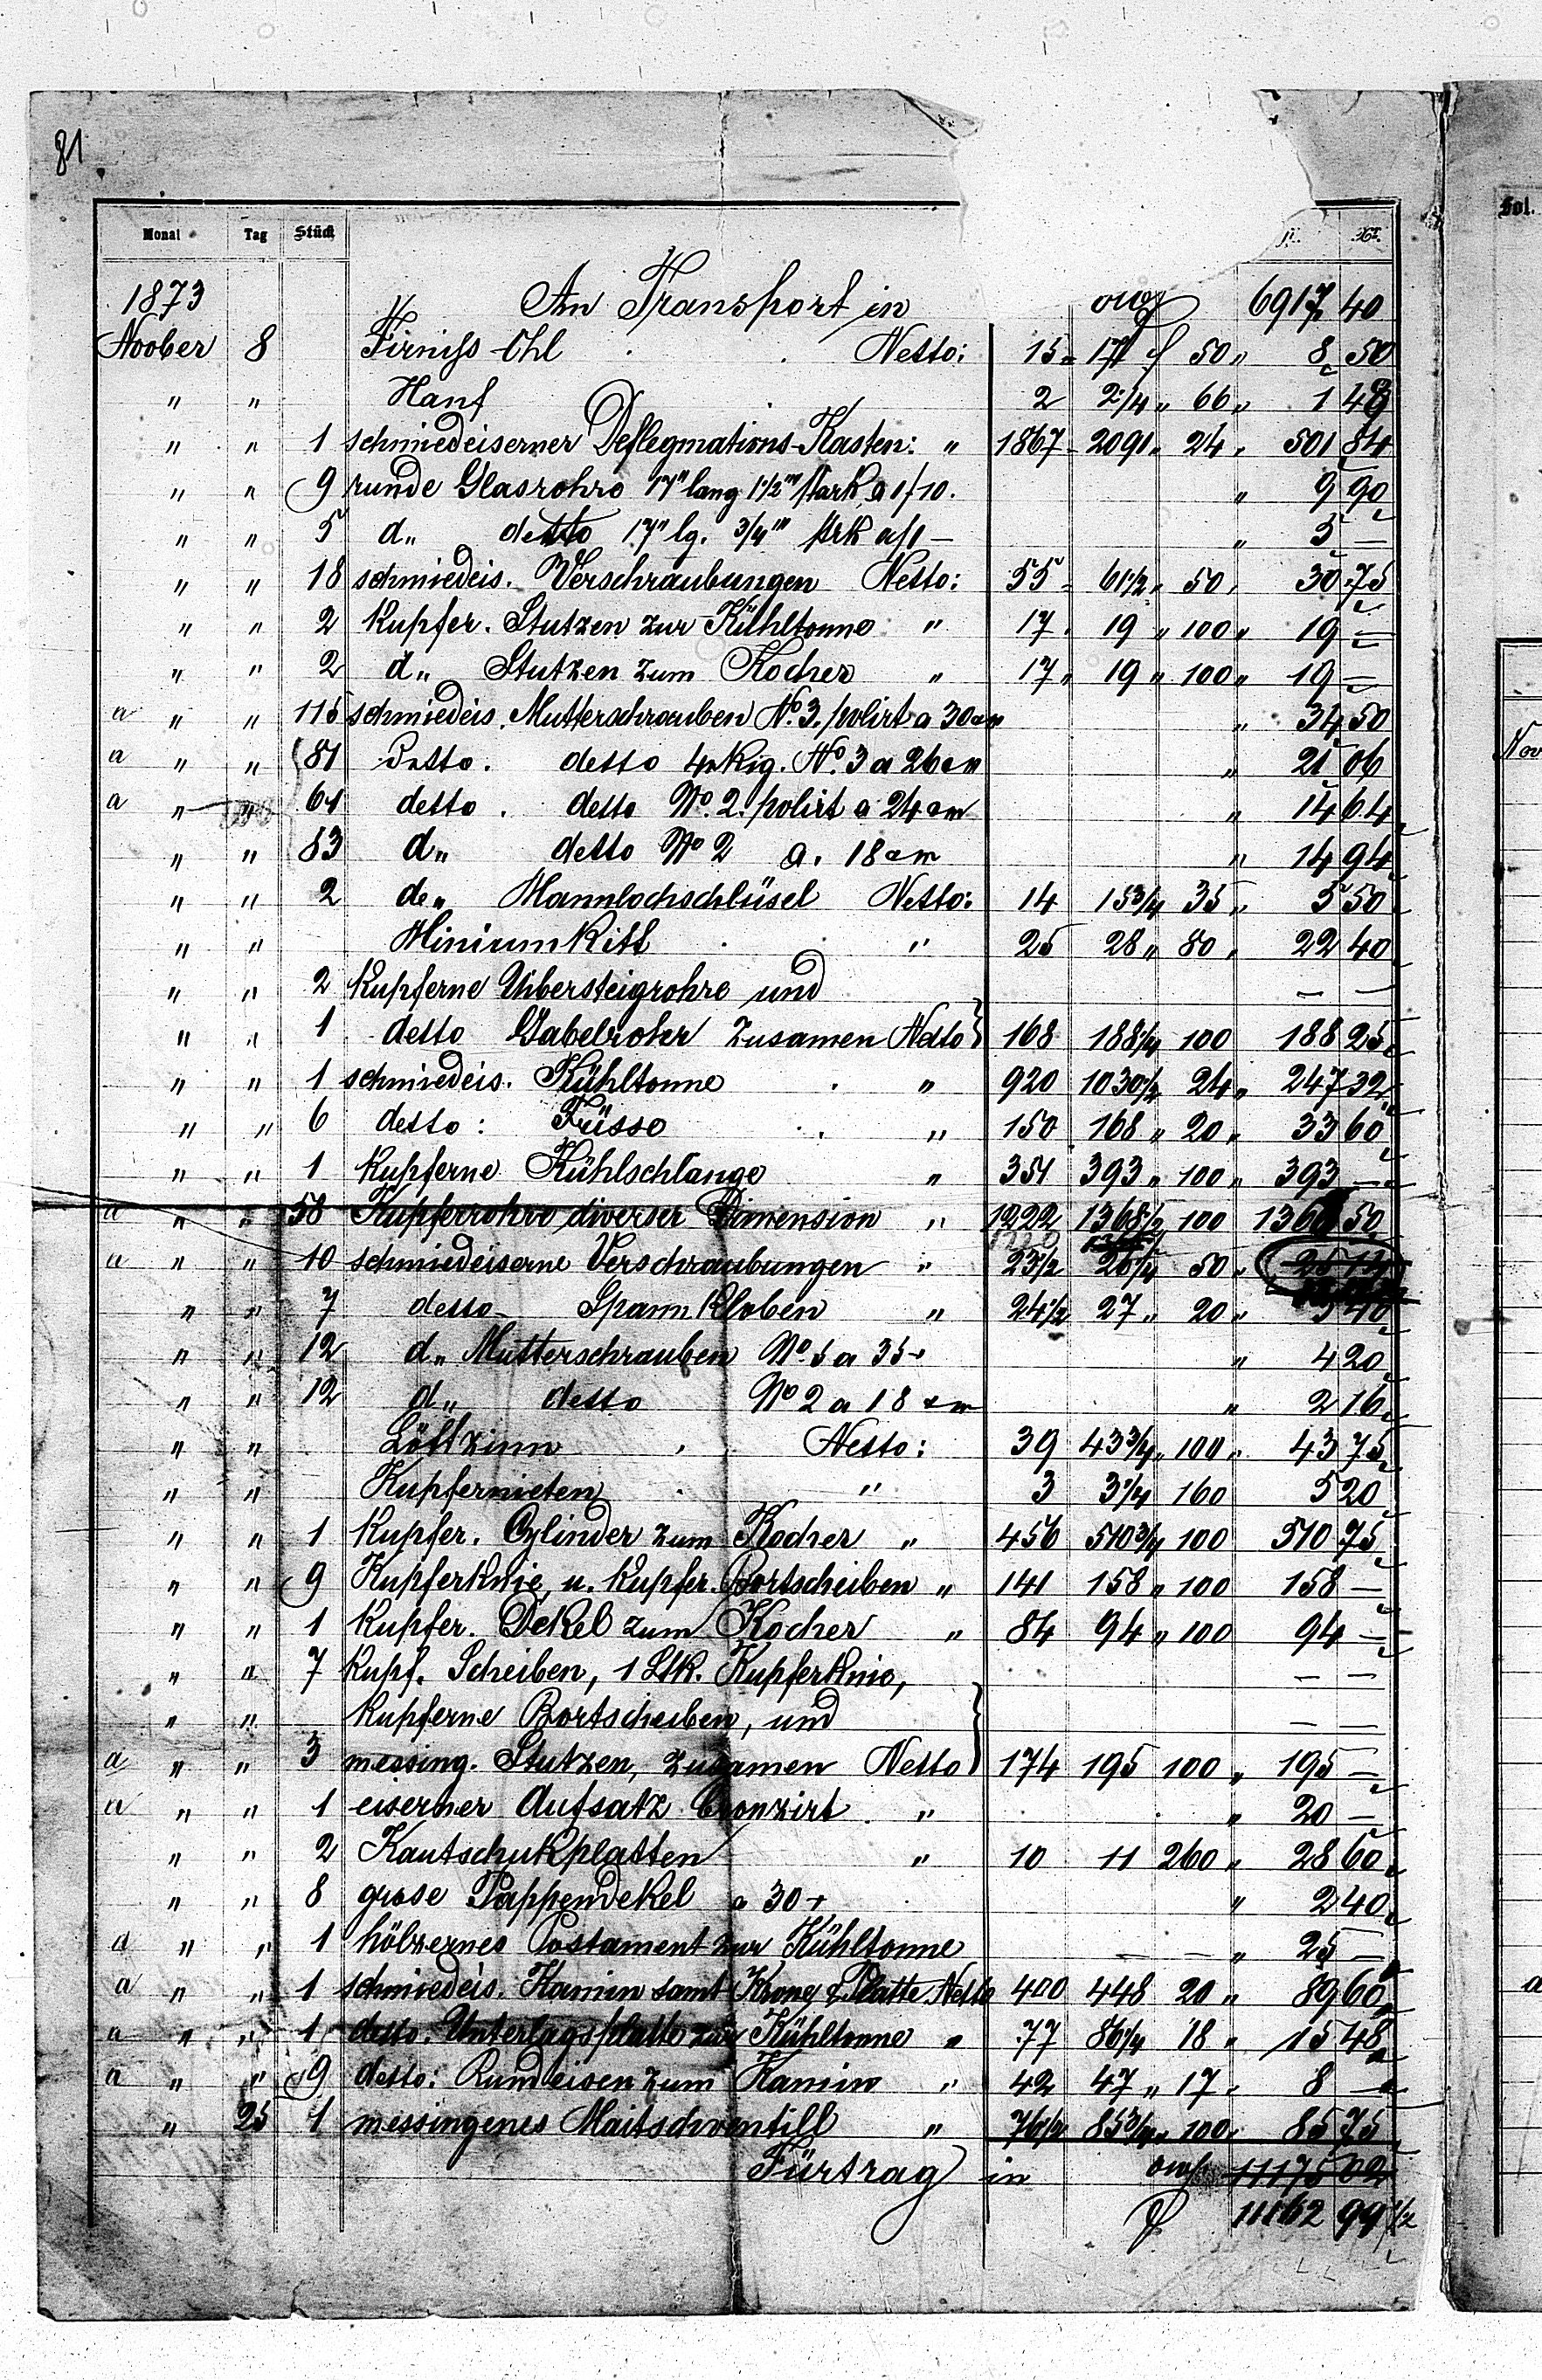 81
Monat Tag Stück fl. Kr.
1873 An Transport in owg 6917 40
Noober 8 Firniss-Öhl Netto: 15 " 17 f 50 " 8 50
" " Hanf 2 2 1/4 " 66 " 1 48
" " 1 schmiedeiserner Deflegmations-Kasten: " 1867 - 2091 " 24 " 501 84
" " 9 runde Glasrohre 17" lang 1 1/2''' stark a 1f10. " 9 90
" " 5 d" detto 17" lg. 3/4''' strk a f1 — " 5 —
" " 18 schmiedeis. Verschraubungen Netto: 55 - 61 1/2 " 50 " 30 75
" " 2 kupfer. Stutzen zur Kühltonne " 17 " 19 " 100 " 19 —
" " 2 d" Stutzen zum Kocher " 17 " 19 " 100 " 19 —
a " " 115 schmiedeis. Mutterschrauben No. 3. polirt a 30 " 34 50
a " " 81 Detto. detto 4kig. No. 3 a 26 " 21 06
a " " 61 detto. detto No. 2. polirt a 24 " 14 64
" " 83 d" detto No 2 a. 18 " 14 94
" " 2 de" Mannlochschlüsel Netto: 14 15 3/4 35 " 5 50
" " Miniumkitt " 25 28 " 80 " 22 40
" " 2 kupferne Übersteigrohre und — —
" " 1 detto Gabelrohr zusamen Netto } 168 188 1/4 100 188 25
" " 1 schmiedeis. Kühltonne " 920 1030 1/2 24 " 247 32
" " 6 detto: Füsse " 150 168 " 20 " 33 60
" " 1 kupferne Kühlschlange " 351 393 " 100 " 393 —
a " " 58 Kupferrohre diverser Dimension " 1222 1368 1/2 100 1368 50
a " " 10 schmiedeiserne Verschraubungen " 23 1/2 26 1/4 50 "
" " 7 detto Spannkloben " 24 1/2 27 " 20 " 5 40
" " 12 d" Mutterschrauben No. 5 a 35 " 4 20
" " 12 d" detto No 2 a 18 " 2 16
" " Löttzinn Netto: 39 43 3/4 " 100 " 43 75
" " Kupfernieten " 3 3 1/4 160 5 20
" " 1 kupfer. Cylinder zum Kocher " 456 510 3/4 100 510 75
" " 9 Kupferknie u. kupfer. Bortscheiben " 141 158 " 100 158 —
" " 1 kupfer. Dekel zum Kocher " 84 94 " 100 94 —
" " 7 kupf. Scheiben, 1 Stk. Kupferknie, — —
" " kupferne Bortscheiben, und — —
a " " 3 messing. Stutzen, zusamen Netto } 174 195 100 " 195 —
a " " 1 eiserner Aufsatz bronzirt " " 20 —
" " 2 Kautschukplatten " 10 11 260 " 28 60
" " 8 grose Pappendekel a 30 " 2 40
a " " 1 hölzernes Postament zur Kühltonne — — " 25 —
a " " 1 schmiedeis. Kamin samt Krone & Platte Netto 400 448 20 " 89 60
a " " 1 detto. Unterlagsplatte zur Kühltonne " 77 86 1/4 18 " 15 48
a " " 9 detto: Rundeisen zum Kamin " 42 47 " 17 " 8 —
" 25 1 messingenes Maitschventill " 76 1/2 85 3/4 " 100 " 85 75
Fürtrag in owg 11175 02
f 11162 99 1/2
Fol.
Nov
a